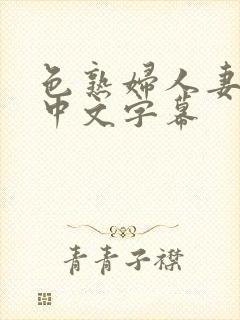 色熟婦人妻
中文字幕
青青子襟